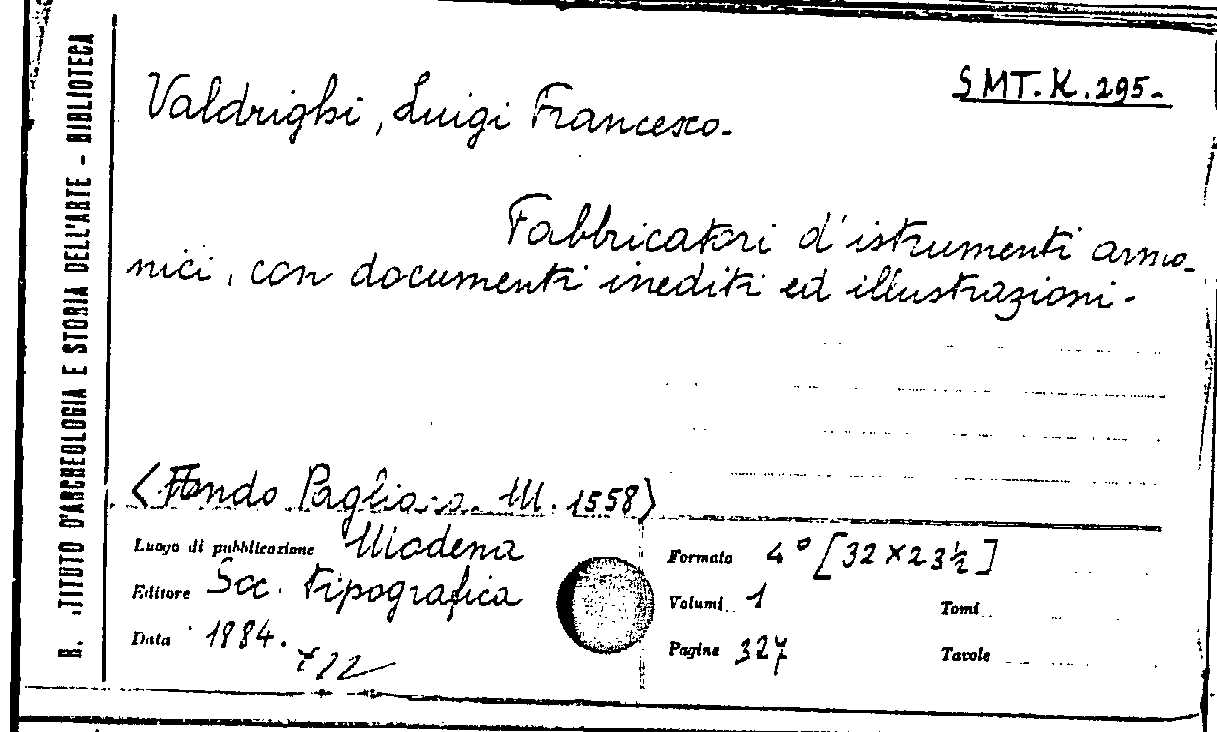 R. .TITUTO D'ARCHEOLOGIA E STORIA DELL'ARTE - BIBLIOTECA
SMT.K.295.
Valdrighi, Luigi Francesco.
Fabbricatori d'istrumenti armo-
nici, con documenti inediti ed illustrazioni.
<Fondo Pagliara. M. 1558>
Luogo di pubblicazione Modena
Editore Soc. tipografica
Data 1884.
Formato 4° [32×23½]
Volumi 1 Tomi
Pagine 327 Tavole